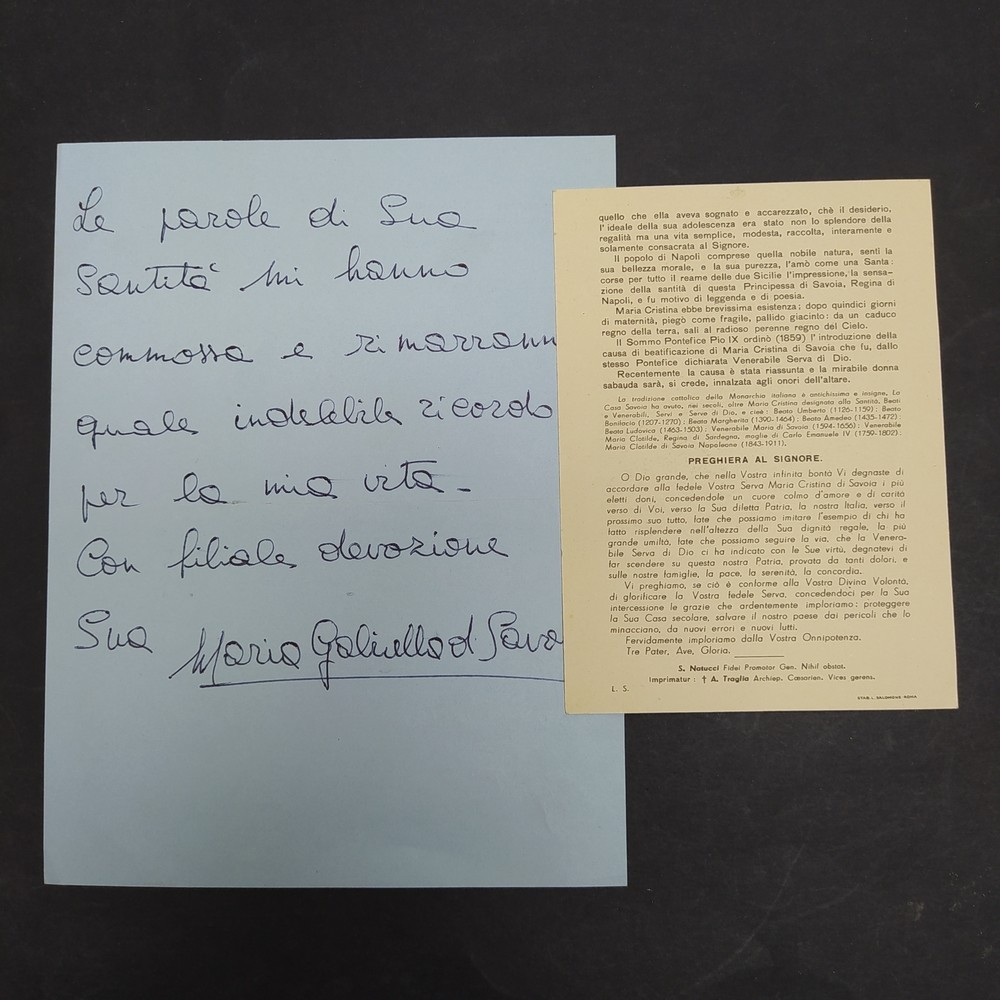 Le parole di Sua
Santità mi hanno
commossa e rimarrann
quale indelebile ricordo
per la mia vita -
Con filiale devozione
Sua Maria Gabriella di Savo
quello che ella aveva sognato e accarezzato, chè il desiderio,
l'ideale della sua adolescenza era stato non lo splendore della
regalità ma una vita semplice, modesta, raccolta, interamente e
solamente consacrata al Signore.
Il popolo di Napoli comprese quella nobile natura, sentì la
sua bellezza morale, e la sua purezza, l'amò come una Santa:
corse per tutto il reame delle due Sicilie l'impressione, la sensa-
zione della santità di questa Principessa di Savoia, Regina di
Napoli, e fu motivo di leggenda e di poesia.
Maria Cristina ebbe brevissima esistenza; dopo quindici giorni
di maternità, piegò come fragile, pallido giacinto: da un caduco
regno della terra, salì al radioso perenne regno del Cielo.
Il Sommo Pontefice Pio IX ordinò (1859) l'introduzione della
causa di beatificazione di Maria Cristina di Savoia che fu, dallo
stesso Pontefice dichiarata Venerabile Serva di Dio.
Recentemente la causa è stata riassunta e la mirabile donna
sabauda sarà, si crede, innalzata agli onori dell'altare.
La tradizione cattolica della Monarchia italiana è antichissima e insigne. La
Casa Savoia ha avuto, nei secoli, oltre Maria Cristina designata alla Santità, Beati
e Venerabili, Servi e Serve di Dio, e cioè: Beato Umberto (1126-1159); Beato
Bonifacio (1207-1270); Beata Margherita (1390-1464); Beato Amedeo (1435-1472);
Beata Ludovica (1463-1503); Venerabile Maria di Savoia (1594-1656); Venerabile
Maria Clotilde, Regina di Sardegna, moglie di Carlo Emanuele IV (1759-1802);
Maria Clotilde di Savoia Napoleone (1843-1911).
PREGHIERA AL SIGNORE.
O Dio grande, che nella Vostra infinita bontà Vi degnaste di
accordare alla fedele Vostra Serva Maria Cristina di Savoia i più
eletti doni, concedendole un cuore colmo d'amore e di carità
verso di Voi, verso la Sua diletta Patria, la nostra Italia, verso il
prossimo suo tutto, fate che possiamo imitare l'esempio di chi ha
fatto risplendere nell'altezza della Sua dignità regale, la più
grande umiltà, fate che possiamo seguire la via, che la Venera-
bile Serva di Dio ci ha indicato con le Sue virtù, degnatevi di
far scendere su questa nostra Patria, provata da tanti dolori, e
sulle nostre famiglie, la pace, la serenità, la concordia.
Vi preghiamo, se ciò è conforme alla Vostra Divina Volontà,
di glorificare la Vostra fedele Serva, concedendoci per la Sua
intercessione le grazie che ardentemente imploriamo: proteggere
la Sua Casa secolare, salvare il nostro paese dai pericoli che lo
minacciano, da nuovi errori e nuovi lutti.
Fervidamente imploriamo dalla Vostra Onnipotenza.
Tre Pater, Ave, Gloria.
S. Natucci Fidei Promotor Gen. Nihil obstat.
Imprimatur: † A. Traglia Archiep. Cæsarien. Vices gerens.
L. S.
STAB. L. SALOMONE ROMA